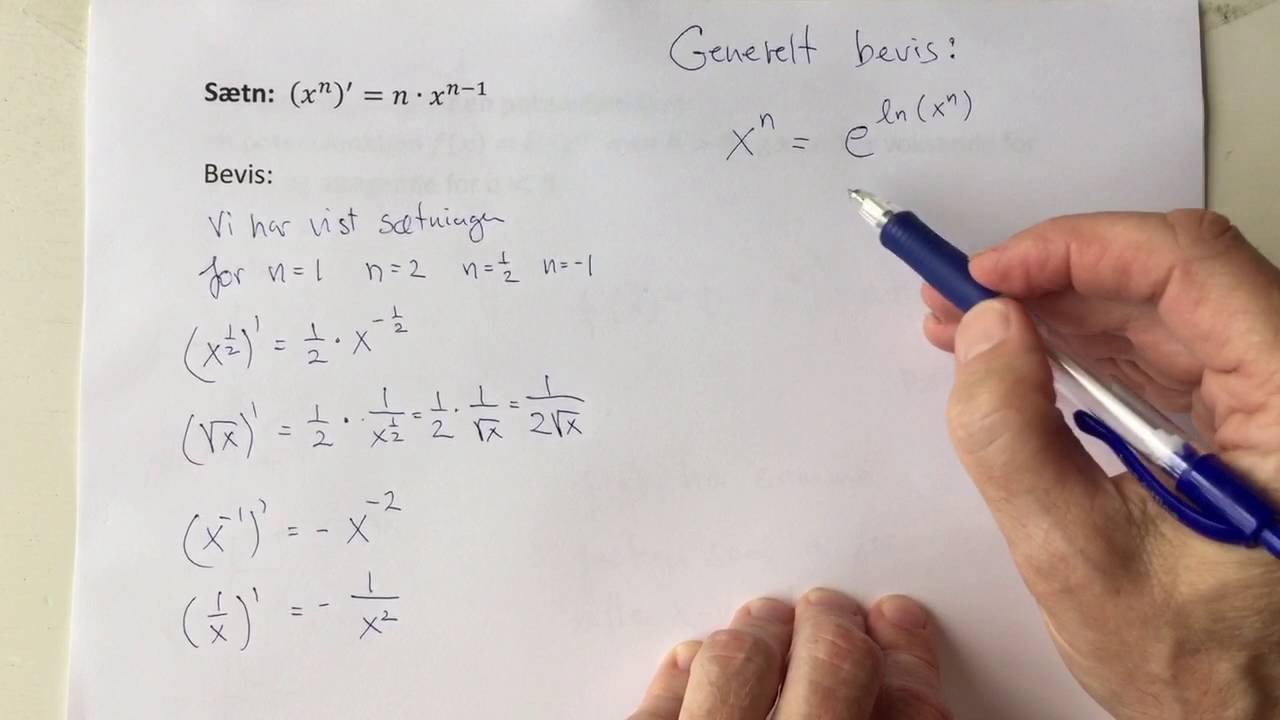 Sætn: (xⁿ)′ = n · xⁿ⁻¹
Bevis:
Vi har vist sætningen
for n=1 n=2 n=½ n=-1
(x^½)' = ½ · x^(-½)
(√x)' = ½ · 1/x^½ = ½ · 1/√x = 1/(2√x)
(x⁻¹)' = - x⁻²
(1/x)' = - 1/x²
Generelt bevis:
xⁿ = e^ln(xⁿ)